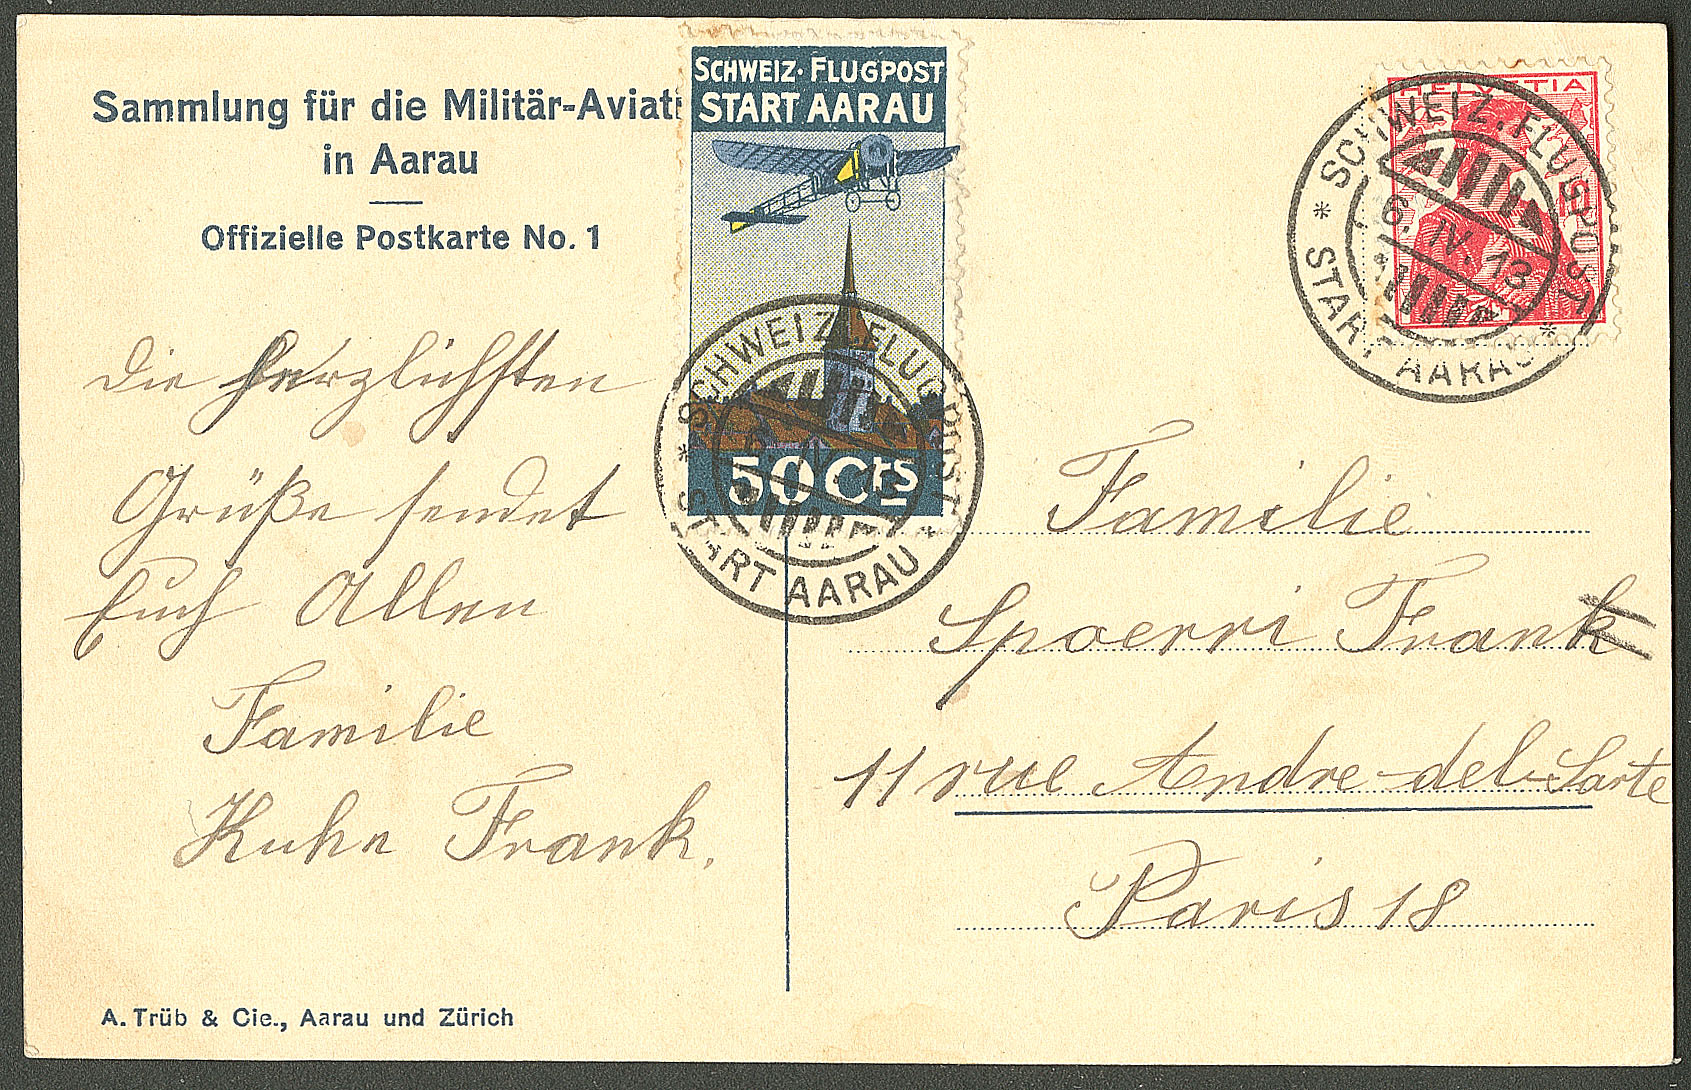 Sammlung für die Militär-Aviati
in Aarau
Offizielle Postkarte No. 1
SCHWEIZ. FLUGPOST
START AARAU
50 Cts
HELVETIA
* SCHWEIZ. FLUGPOST *
START AARAU
6. IV. 13
* SCHWEIZ. FLUGPOST *
START AARAU
die herzlichsten
Grüße sendet
Euch Allen
Familie
Kuhn Frank.
Familie
Spoerri Frank
11 rue Andre-del-Sarte
Paris 18
A. Trüb & Cie., Aarau und Zürich